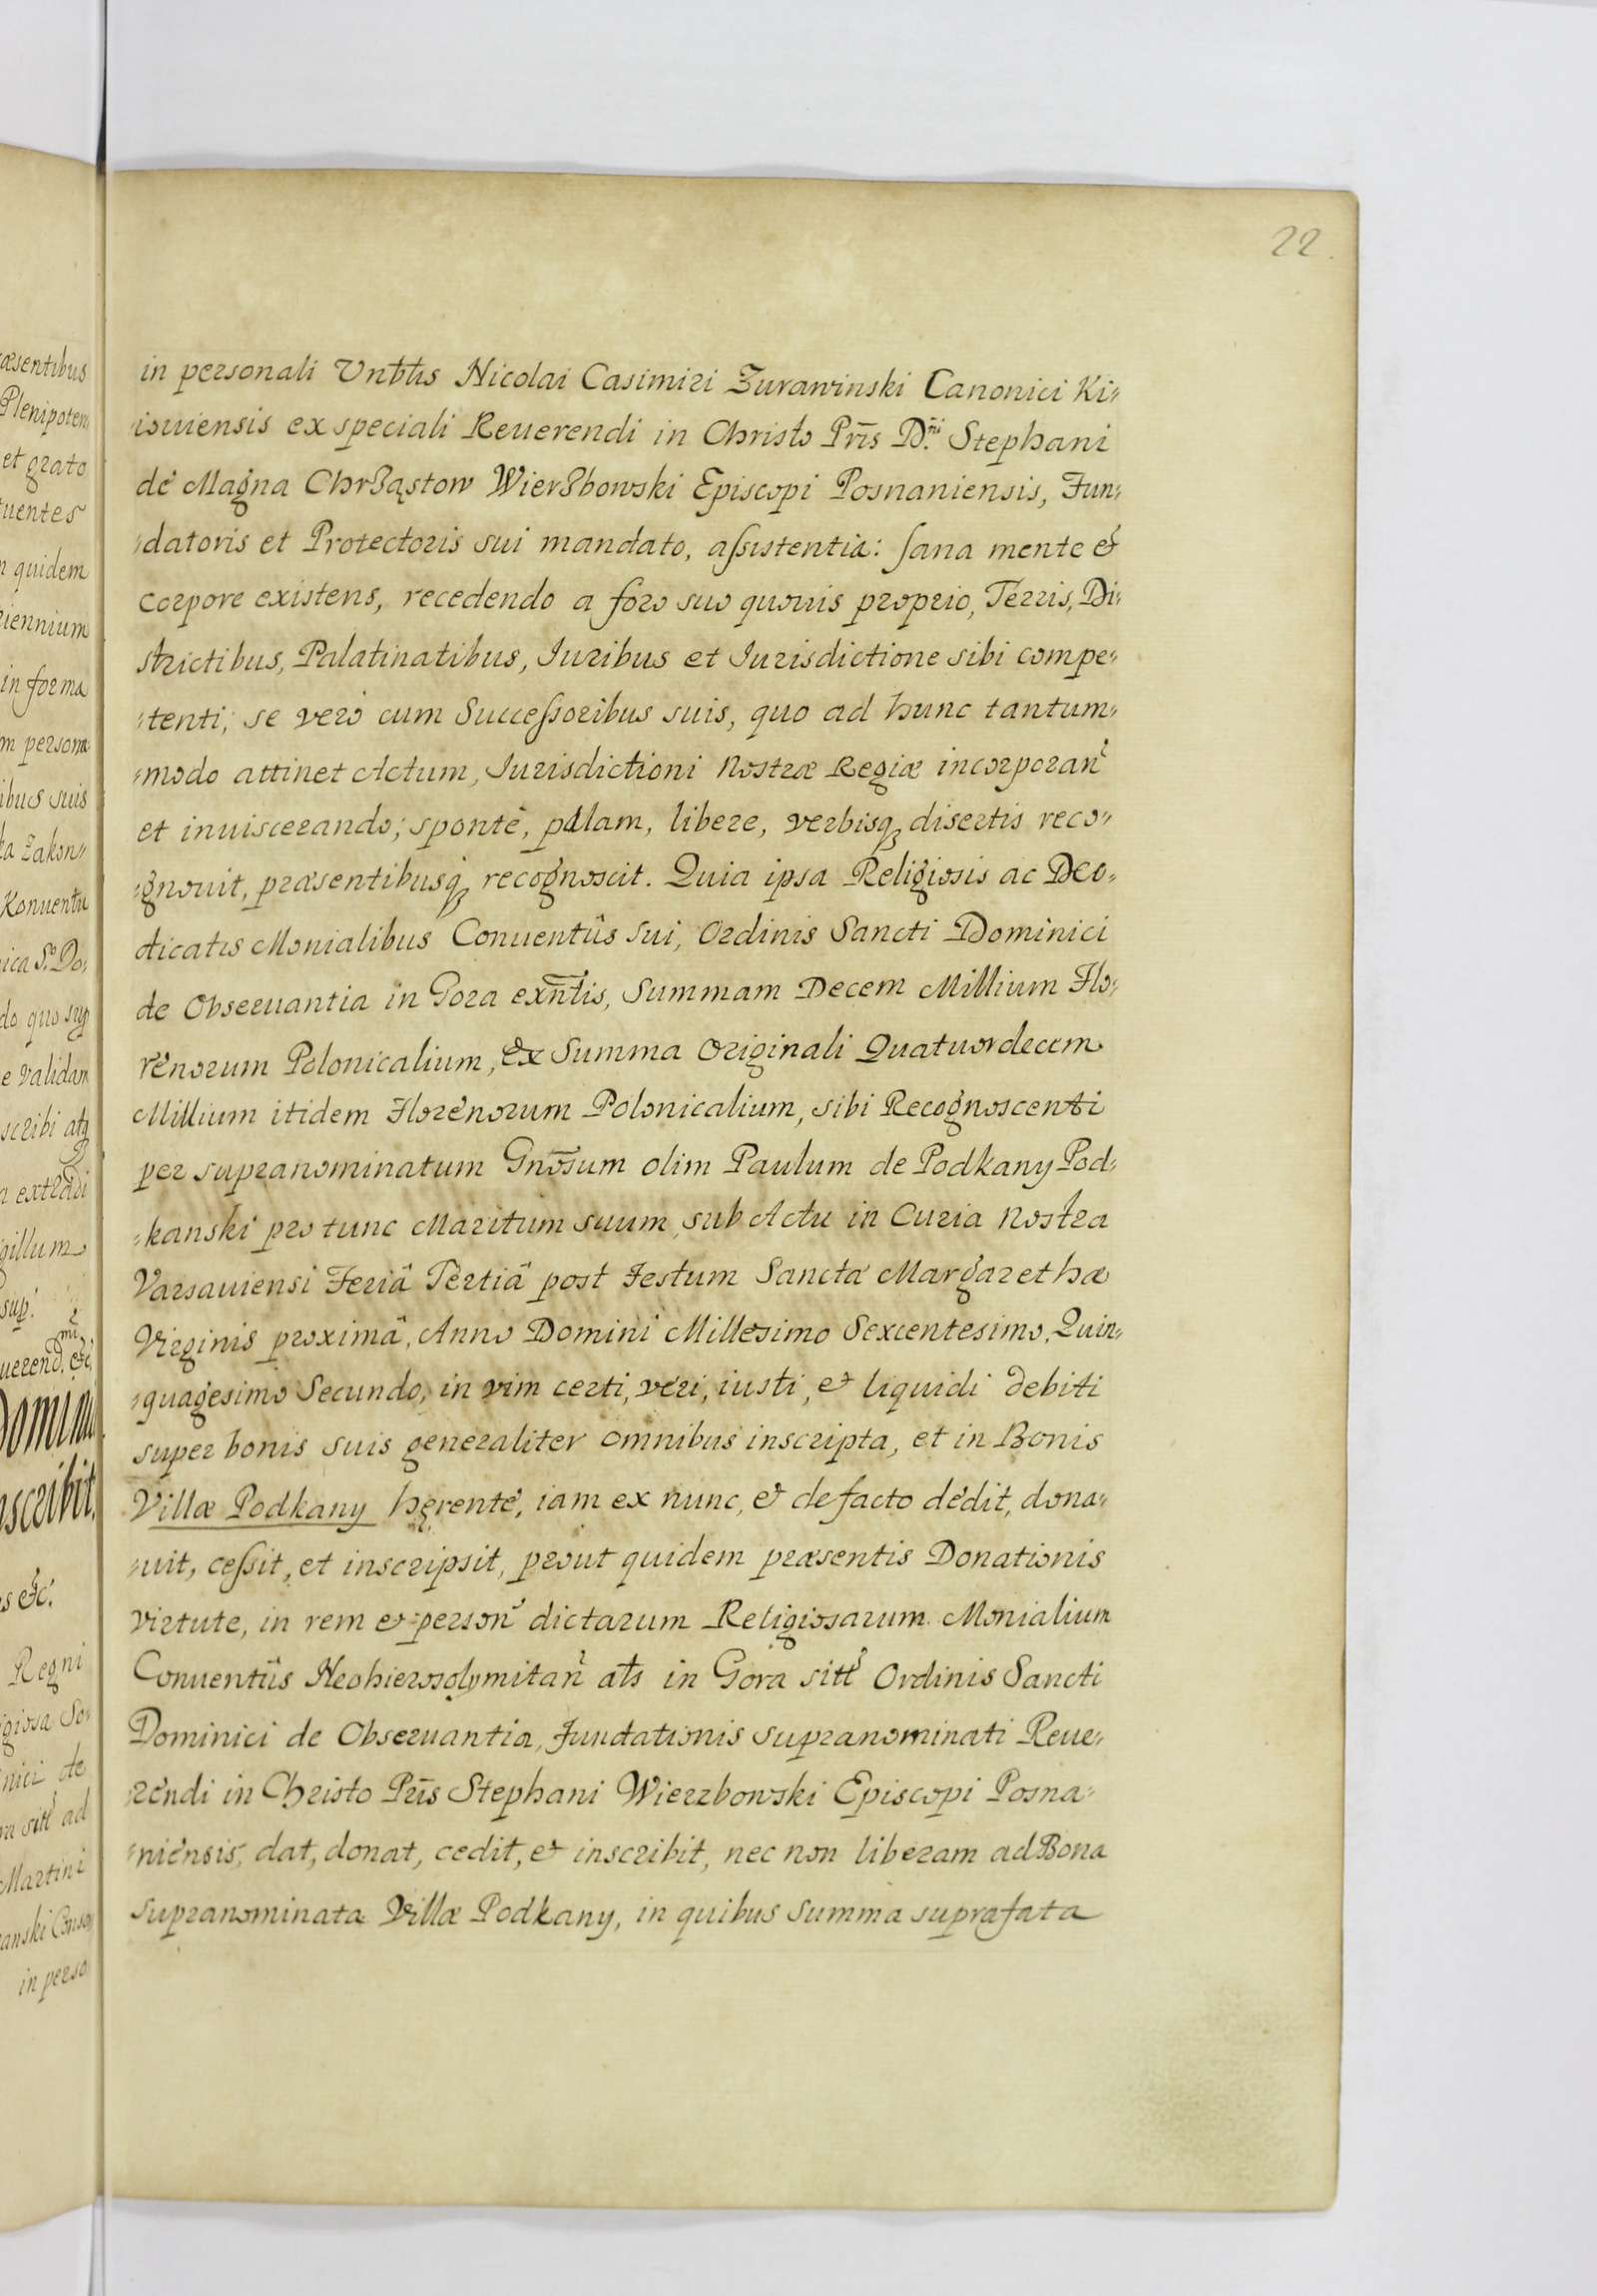 22.
in personali Vnbtis Nicolai Casimiri Zurawinski Canonici Ki„
„iouiensis ex speciali Reuerendi in Christo Pris D.ni Stephani
dé Magna Chrząstow Wierzbowski Episcopi Posnaniensis, Fun„
„datoris et Protectoris sui mandato, aſsistentia: ſana mente et
corpore existens, recedendo a foro suo quouis proprio, Terris, Di„
strictibus, Palatinatibus, Iuribus et Iurisdictione sibi compe„
„tenti; se verò cum Succeſsoribus suis, quo ad hunc tantum„
„modo attinet Actum, Iurisdictioni Nostræ Regiæ incorporan̄
et inuiscerando; spontè, palam, libere, verbisq; disertis reco„
„gnouit, præsentibusq; recognoscit. Quia ipsa Religiosis ac Deo„
dicatis Monialibus Conuentûs sui, Ordinis Sancti Dominici
de Obseruantia in Gora exn̄tis, Summam Decem Millium Flo„
rénorum Polonicalium, ex Summa Originali Quatuordecem
Millium itidem Florénorum Polonicalium, sibi Recognoscenti
per supranominatum Gnōsum olim Paulum de Podkany Pod„
„kanski pro tunc Maritum suum, sub Actu in Curia Nostra
Varsauiensi Feriâ Tertiâ post Festum Sanctæ Margarethæ
Virginis proximâ, Anno Domini Millesimo Sexcentesimo, Quin„
„quagesimo Secundo, in vim certi, véri, iusti, et liquidi debiti
super bonis suis generaliter omnibus inscripta, et in Bonis
Villæ Podkany hęrenté, iam ex nunc, et defacto dédit, dona„
„uit, ceſsit, et inscripsit, prout quidem præsentis Donationis
virtute, in rem et person̄ dictarum Religiosarum Monialium
Conuentûs Neohierosolymitan̄ ats in Gora sitt Ordinis Sancti
Dominici de Obseruantia, Fundationis supranominati Reue„
„réndi in Christo Pris Stephani Wierzbowski Episcopi Posna„
„niénsis, dat, donat, cedit, et inscribit, nec non liberam ad Bona
supranominata Villæ Podkany, in quibus summa suprafata